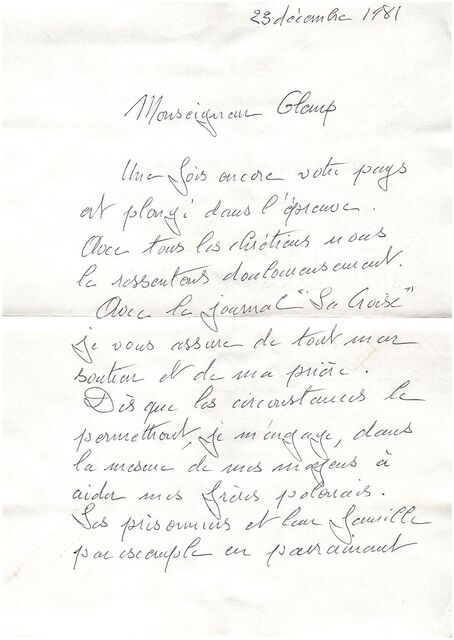 23 décembre 1981
Monseigneur Glemp
Une fois encore votre pays
est plongé dans l'épreuve.
Avec tous les chrétiens nous
le ressentons douloureusement.
Avec le journal "La Croix"
je vous assure de tout mon
soutien et de ma prière.
Dès que les circonstances le
permettront, je m'engage, dans
la mesure de mes moyens à
aider mes frères polonais.
Les prisonniers et leur famille
par exemple en parrainant